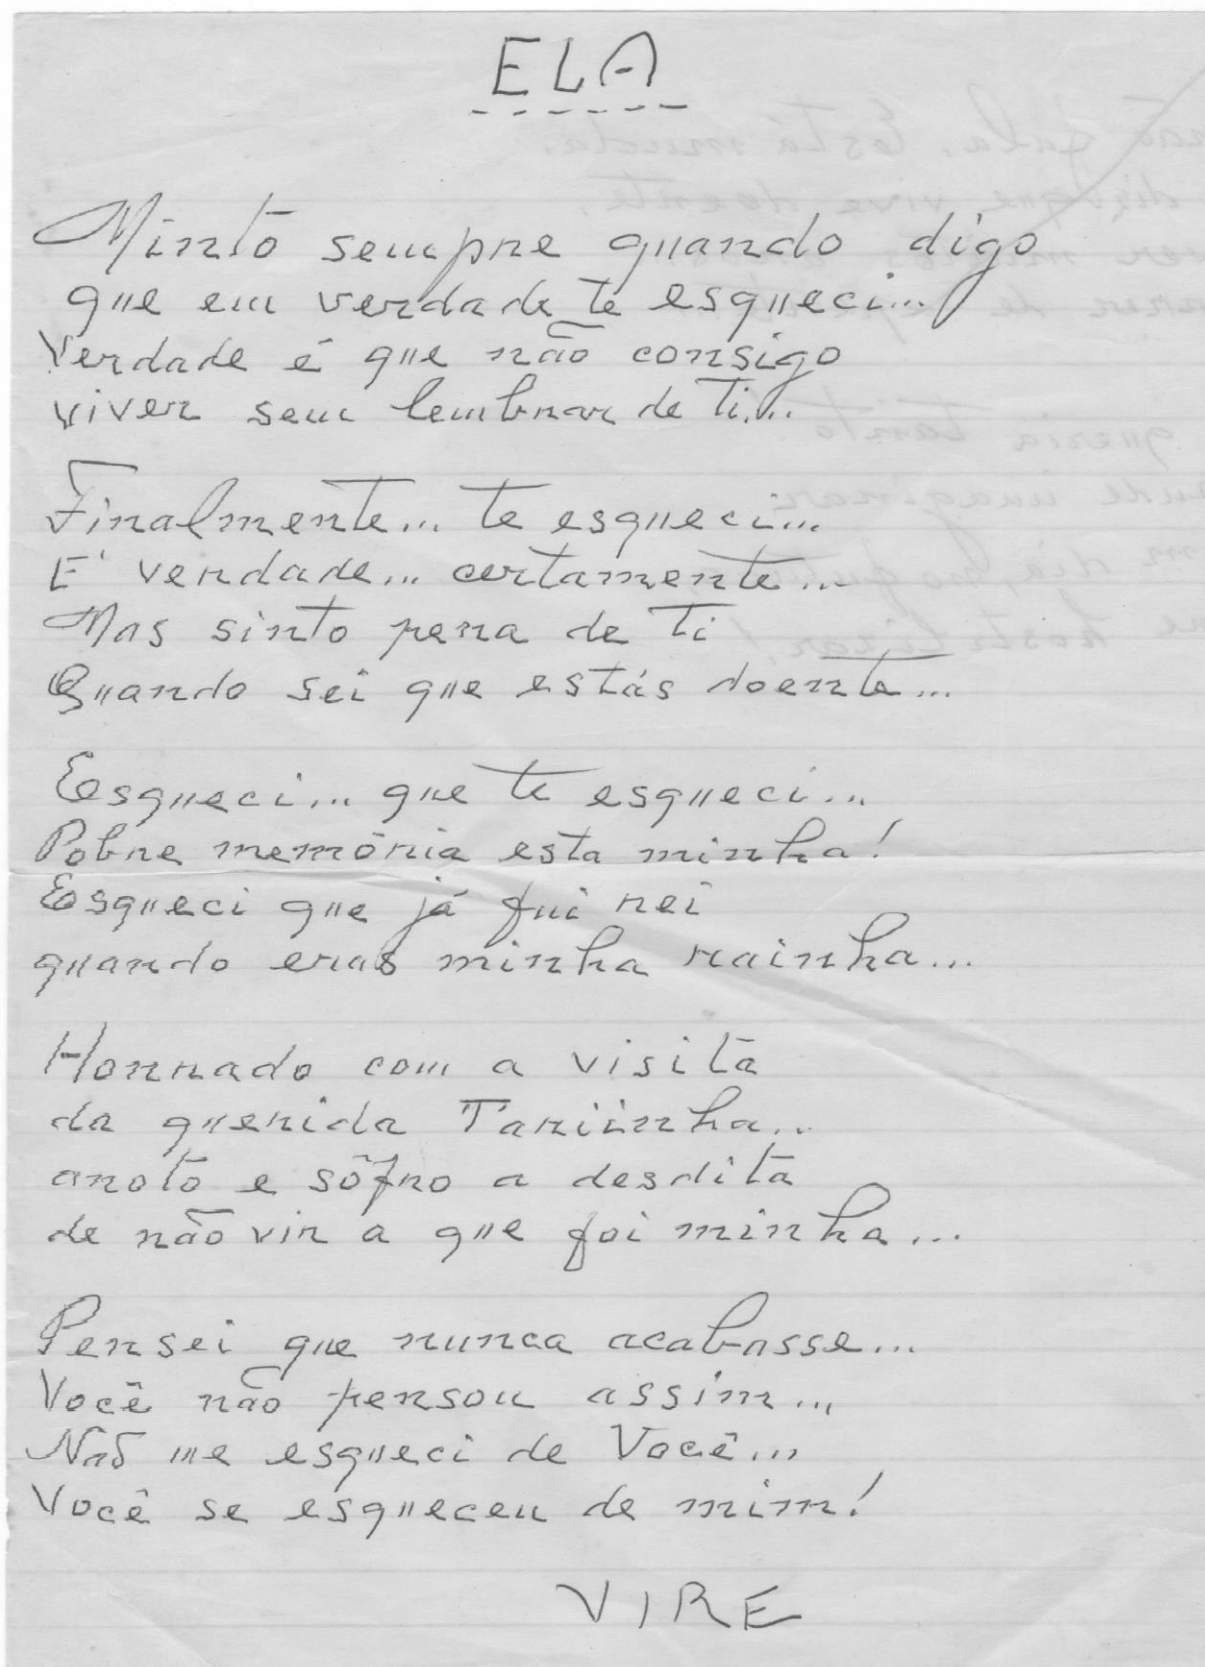 ELA
Minto sempre quando digo
que em verdade te esqueci...
Verdade é que não consigo
viver sem lembrar de Ti...
Finalmente... te esqueci...
E' verdade... certamente...
Mas sinto pena de Ti
Quando sei que estás doente...
Esqueci... que te esqueci...
Pobre memória esta minha!
Esqueci que já fui rei
quando eras minha rainha...
Honrado com a visita
da querida Tariinha...
anoto e sôfro a desdita
de não vir a que foi minha...
Pensei que nunca acabasse...
Você não pensou assim...
Não me esqueci de Você...
Você se esqueceu de mim!
VIRE